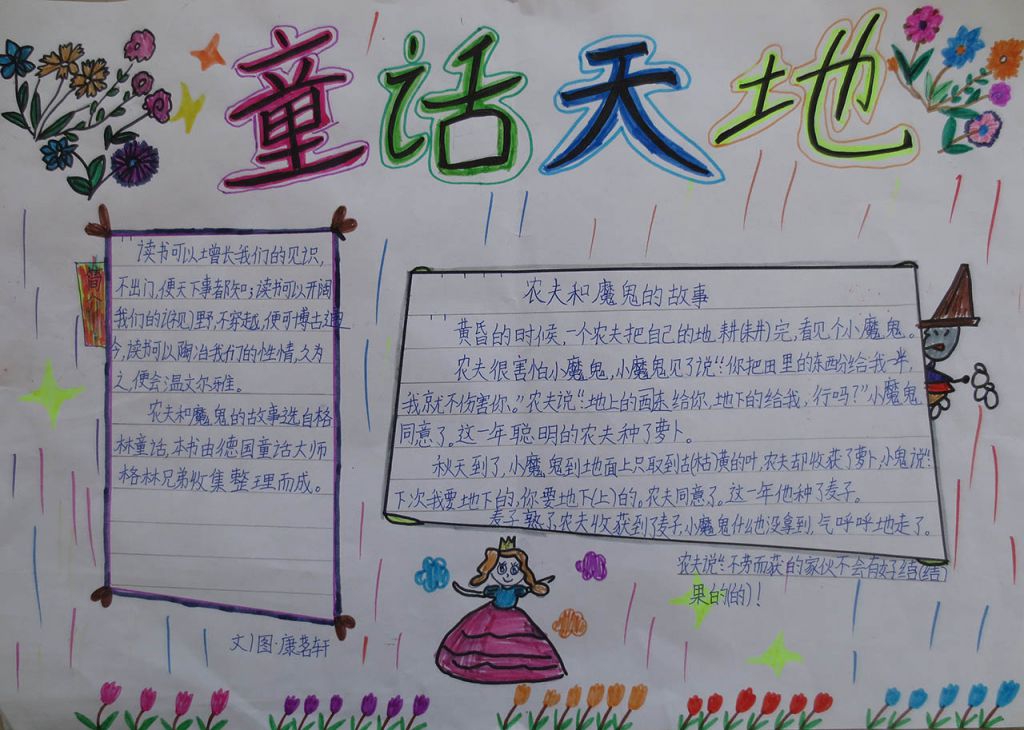 童话天地
简介
读书可以增长我们的见识,
不出门,便天下事都知;读书可以开阔
我们的(视)野,不穿越,便可博古通
今,读书可以陶冶我们的性情,久为
之,便会温文尔雅。
农夫和魔鬼的故事选自格
林童话,本书由德国童话大师
格林兄弟收集整理而成。
文/图·康茗轩
农夫和魔鬼的故事
黄昏的时候,一个农夫把自己的地耕(耕)完,看见个小魔鬼。
农夫很害怕小魔鬼,小魔鬼见了说:“你把田里的东西分给我一半,
我就不伤害你。”农夫说:“地上的东西给你,地下的给我,行吗?”小魔鬼
同意了。这一年聪明的农夫种了萝卜。
秋天到了,小魔鬼到地面上只取到(枯)黄的叶,农夫却收获了萝卜,小鬼说:“
下次我要地下的,你要地下(上)的。农夫同意了。这一年他种了麦子。
麦子熟了农夫收获到了麦子,小魔鬼什么也没拿到,气呼呼地走了。
农夫说:“不劳而获的家伙不会有好结(结)
果的(的)!